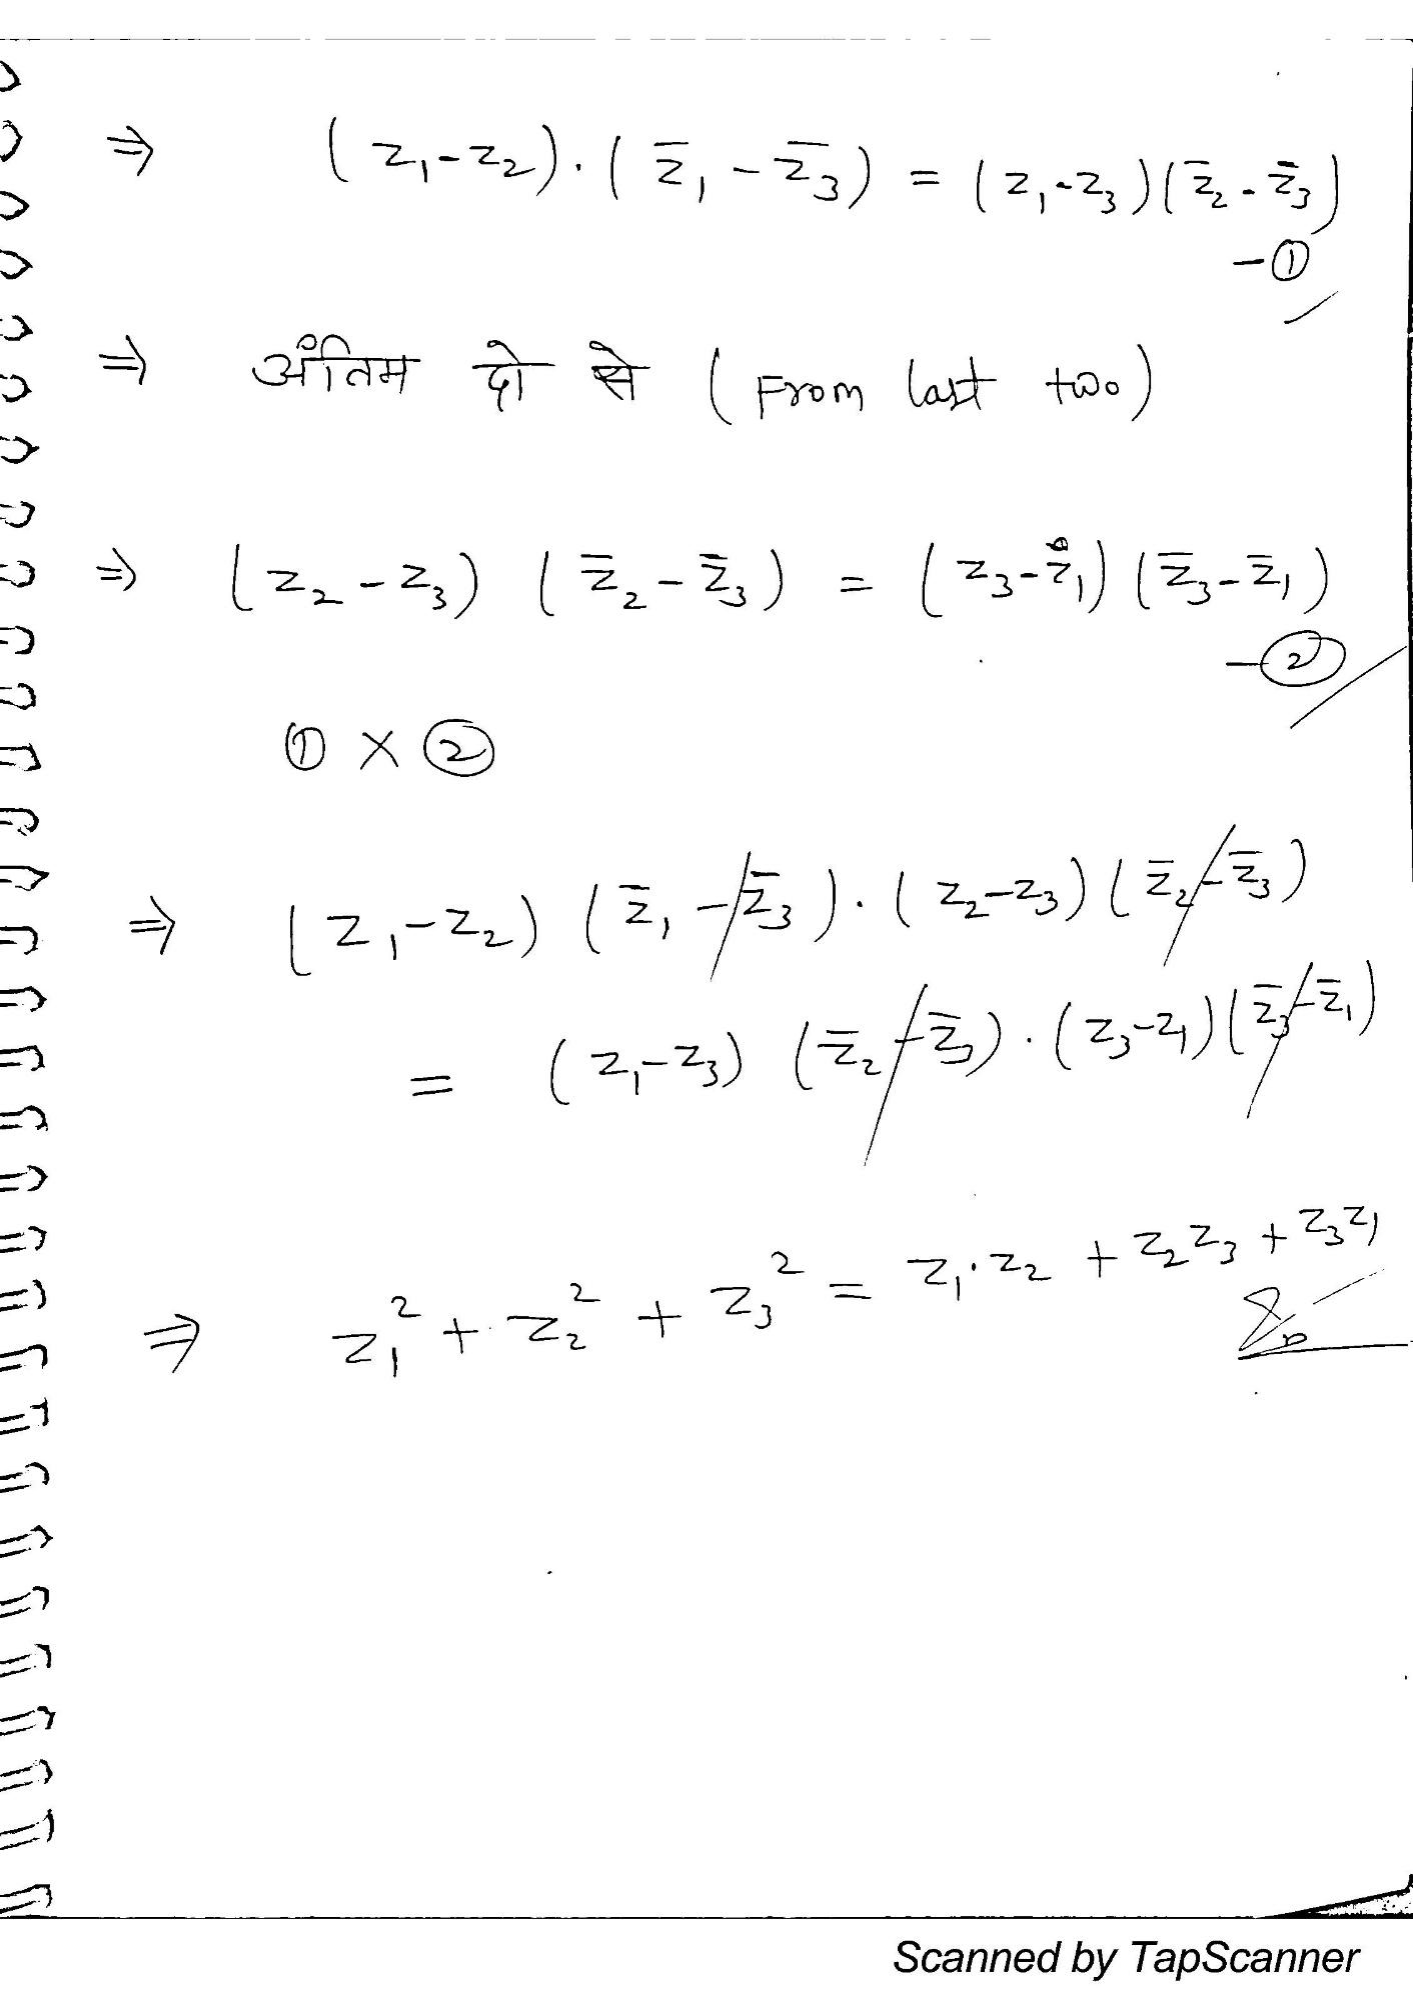 ⇒ (z₁-z₂)·(z̄₁-z̄₃) = (z₁-z₃)(z̄₂-z̄₃)
-①
⇒ अंतिम दो से (From last two)
⇒ (z₂-z₃) (z̄₂-z̄₃) = (z₃-z₁)(z̄₃-z̄₁)
-②
① × ②
⇒ (z₁-z₂) (z̄₁-z̄₃)·(z₂-z₃)(z̄₂-z̄₃)
= (z₁-z₃) (z̄₂-z̄₃)·(z₃-z₁)(z̄₃-z̄₁)
⇒ z₁² + z₂² + z₃² = z₁·z₂ + z₂z₃ + z₃z₁
Scanned by TapScanner